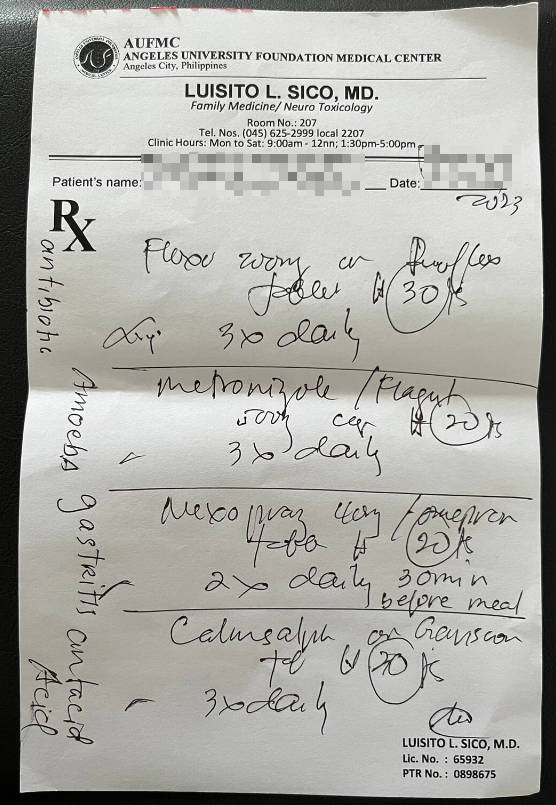 AUFMC
ANGELES UNIVERSITY FOUNDATION MEDICAL CENTER
Angeles City, Philippines
LUISITO L. SICO, MD.
Family Medicine/ Neuro Toxicology
Room No.: 207
Tel. Nos. (045) 625-2999 local 2207
Clinic Hours: Mon to Sat: 9:00am - 12nn; 1:30pm-5:00pm
Patient's name: Date:
2023
Rx
200mg or
30
3x daily
Metronizole / Flagyl
500mg cap # 20
3x daily
40mg
# 20
2x daily 30min
before meal
or Gaviscon
# 30
3x daily
antibiotic
Amoebs gastritis antacid
Acid
LUISITO L. SICO, M.D.
Lic. No. : 65932
PTR No. : 0898675